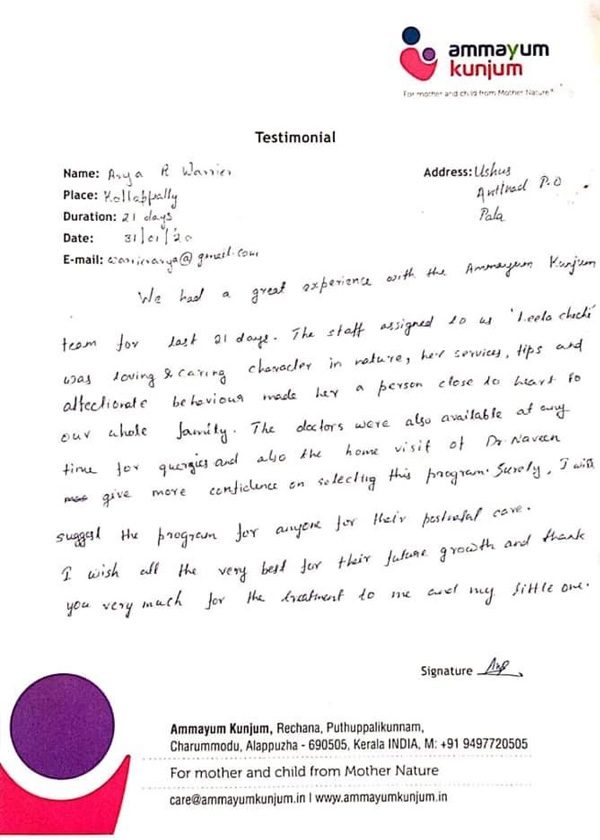 ammayum
kunjum
For mother and child from Mother Nature
Testimonial
Name: Arya R Warrier
Address: Ushus
Place: Kollappally
Anthinad P.O
Duration: 21 days
Pala
Date: 31/01/20
E-mail: warrierarya@gmail.com
We had a great experience with the Ammayum Kunjum
team for last 21 days. The staff assigned to us 'Leela chechi'
was loving & caring character in nature, her services, tips and
affectionate behaviour made her a person close to heart to
our whole family. The doctors were also available at any
time for queries and also the home visit of Dr. Naveen
give more confidence on selecting this program. Surely, I will
suggest the program for anyone for their postnatal care.
I wish all the very best for their future growth and thank
you very much for the treatment to me and my little one.
Signature
Ammayum Kunjum, Rechana, Puthuppalikunnam,
Charummodu, Alappuzha - 690505, Kerala INDIA, M: +91 9497720505
For mother and child from Mother Nature
care@ammayumkunjum.in | www.ammayumkunjum.in